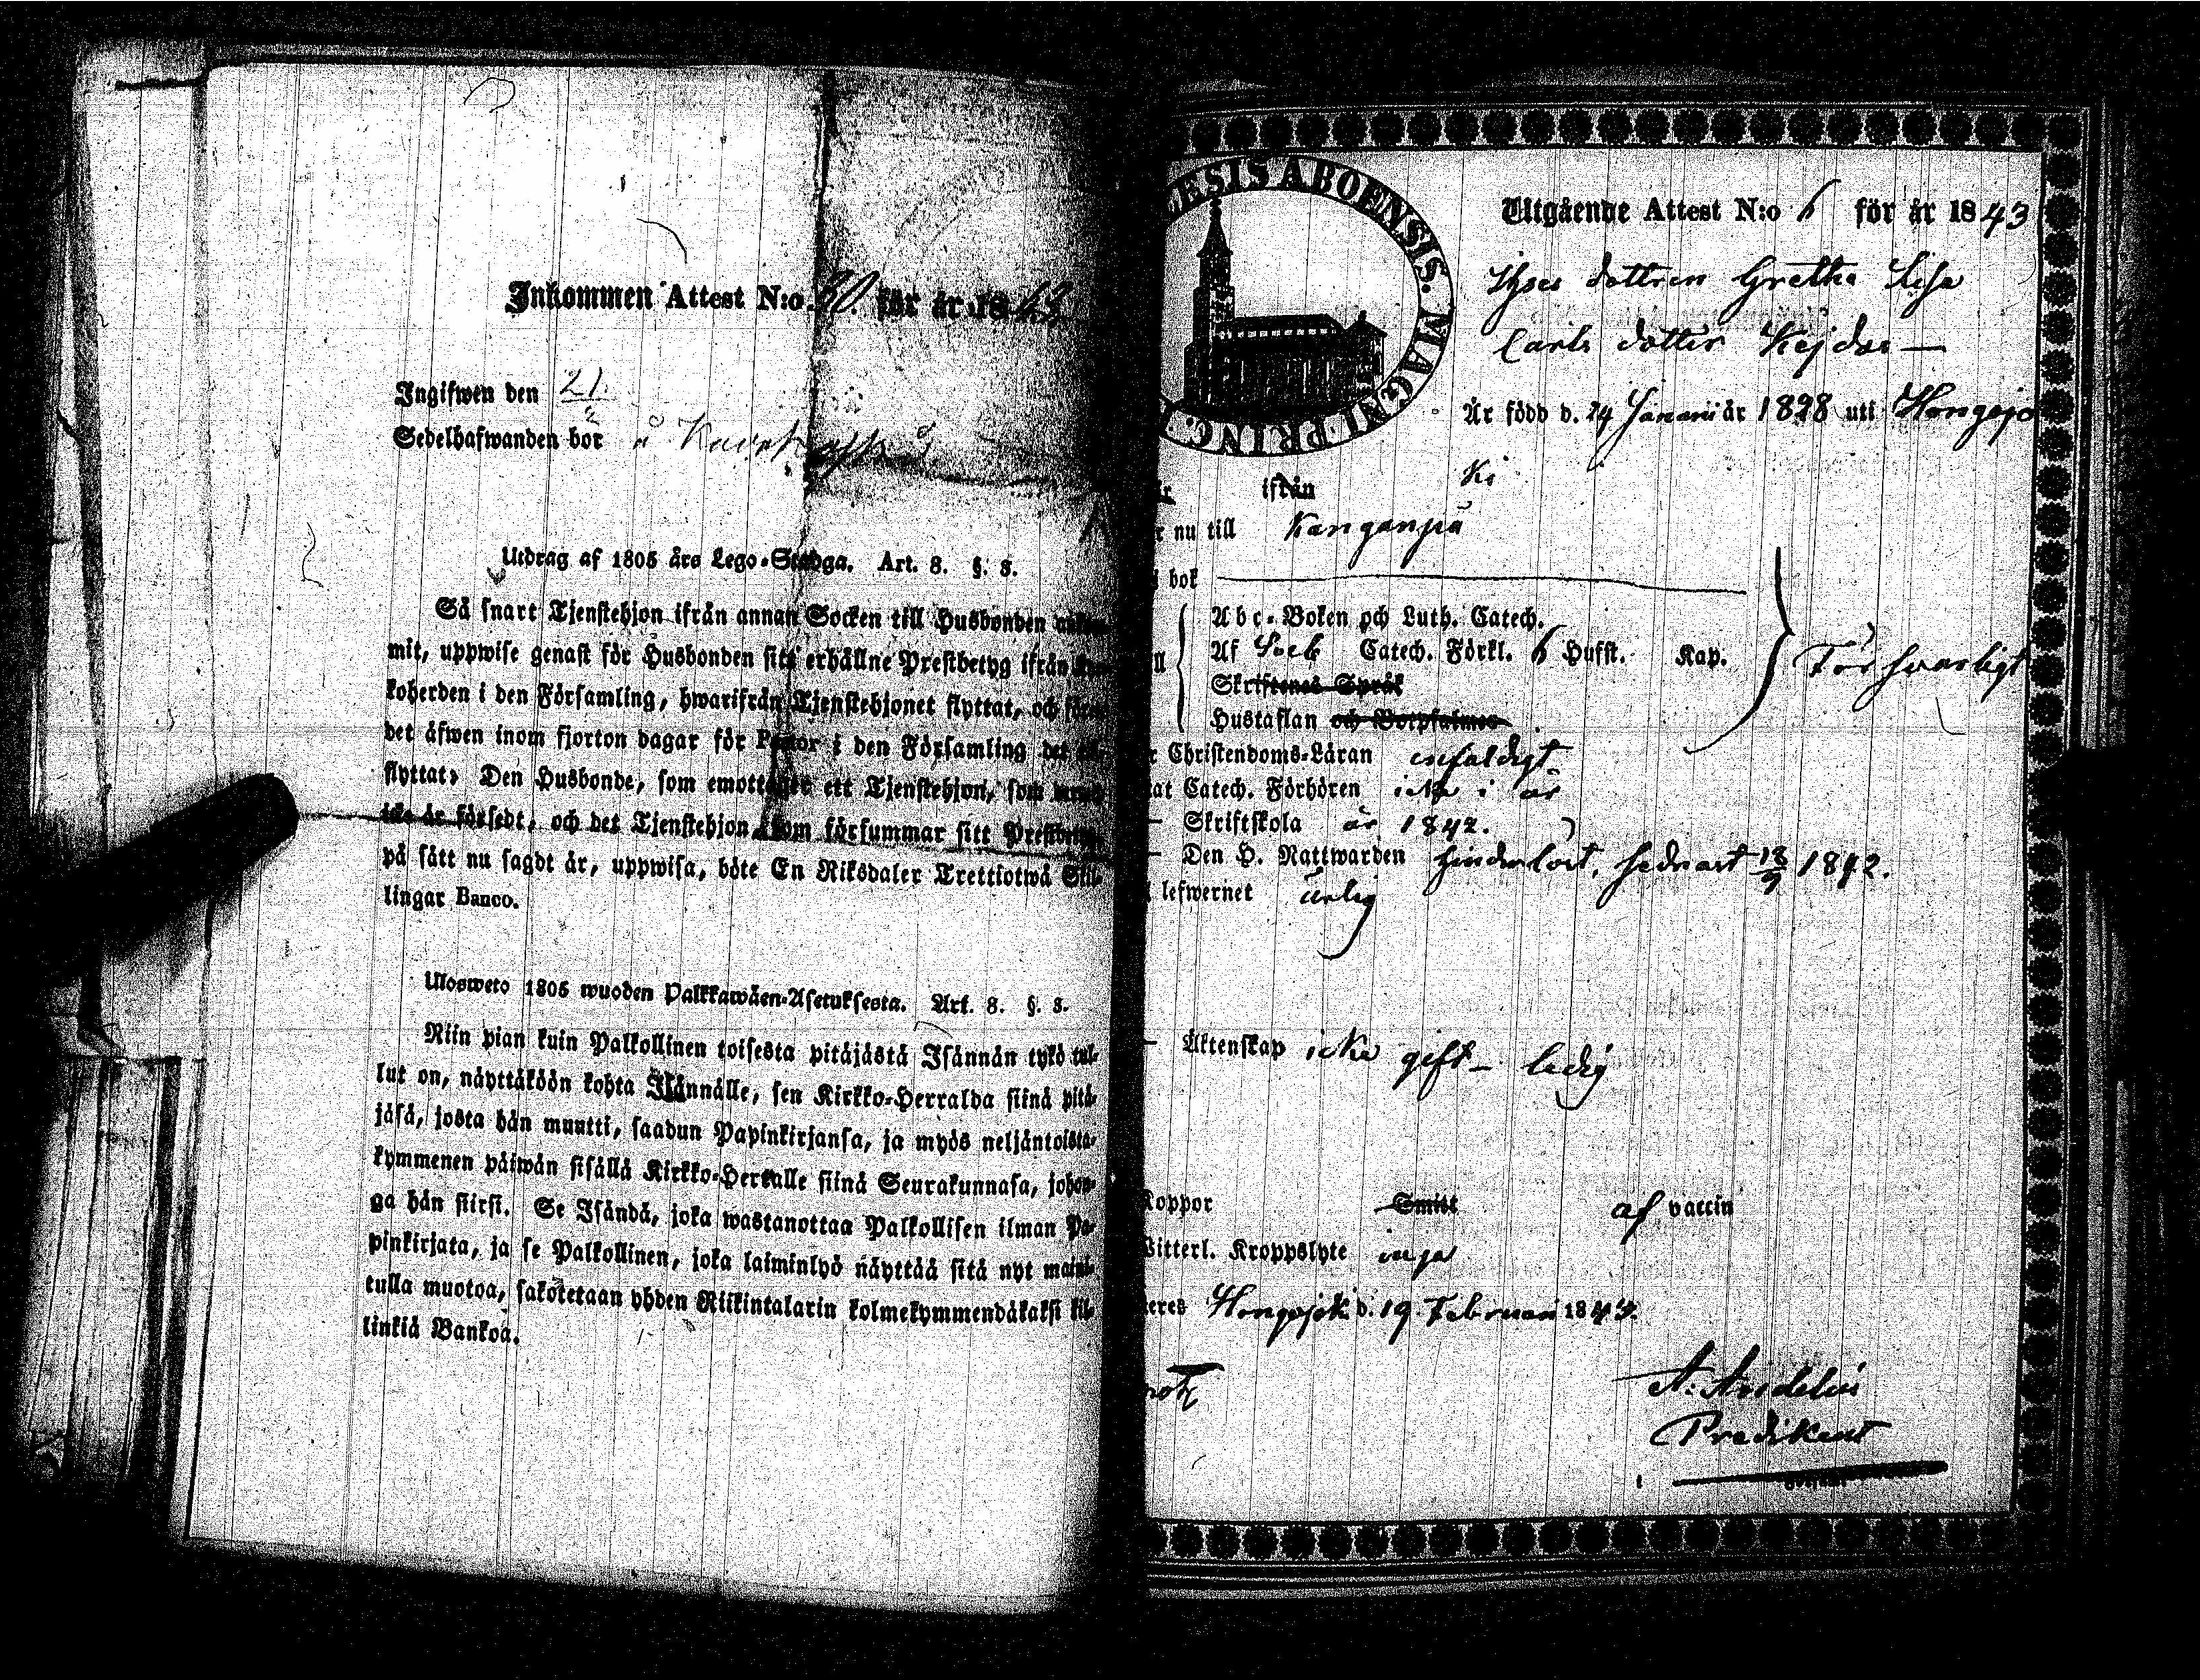 Inkommen Attest N:o 30. för år 1843
Ingifwen den 21
Sedelhafwanden bor å
Utdrag af 1805 års Lego-Stadga. Art. 8. §. 3.
Så snart Tjenstehjon ifrån annan Socken till Husbonden
mit, uppwise genast för Husbonden sitt erhållne Prestbetyg ifrån
koherden i den Församling, hwarifrån Tjenstehjonet flyttat, och
det äfwen inom fjorton dagar för Pastor i den Församling det
flyttat. Den Husbonde, som emottager ett Tjenstehjon, som
icke är försedt, och det Tjenstehjon, som försummar sitt
på sätt nu sagdt är, uppwisa, böte En Riksdaler Trettiotwå Skil-
lingar Banco.
Ulosweto 1805 wuoden Palkkawäen-Asetuksesta. Art. 8. §. 3.
Niin pian kuin Palkollinen toisesta pitäjästä Isännän tykö tul-
lut on, näyttäköön kohta Isännälle, sen Kirkko-Herralda siinä pitä-
jäsä, josta hän muutti, saadun Papinkirjansa, ja myös neljäntoista-
kymmenen päiwän sisällä Kirkko-Herralle siinä Seurakunnasa, johon-
ga hän siirsi. Se Isändä, joka wastanottaa Palkollisen ilman Pa-
pinkirjata, ja se Palkollinen, joka laiminlyö näyttää sitä nyt maini-
tulla muotoa, sakotetaan yhden Riikintalarin kolmekymmendäkaksi kil-
linkiä Bankoa.
ESIS ABOENSIS. MAGNI PRINC.
Utgående Attest N:o 6 för år 1843
dottren Gretha Lisa
Carls dotter
Är född d. 24 Januari år 1828 uti Hongojo
ifrån Ki
nu till Kanganpä
bok
Abc-Boken och Luth. Catech.
Af Catech. Förkl. 6 Hufst. Kap. Försvarligt
Skriftenes Språk
Hustaflan och Botpsalmer
Christendoms-Läran enfaldigt
Catech. Förhören icke i år
Skriftskola år 1842.
Den H. Nattwarden hinderlöst, sednast 18/9 1842.
lefwernet ärlig
Äktenskap icke gift - ledig
Koppor Smitt af vaccin
Witterl. Kroppslyte inga
Hongojoki d. 19 Februari 1843.
A. Avidelin
Predikant